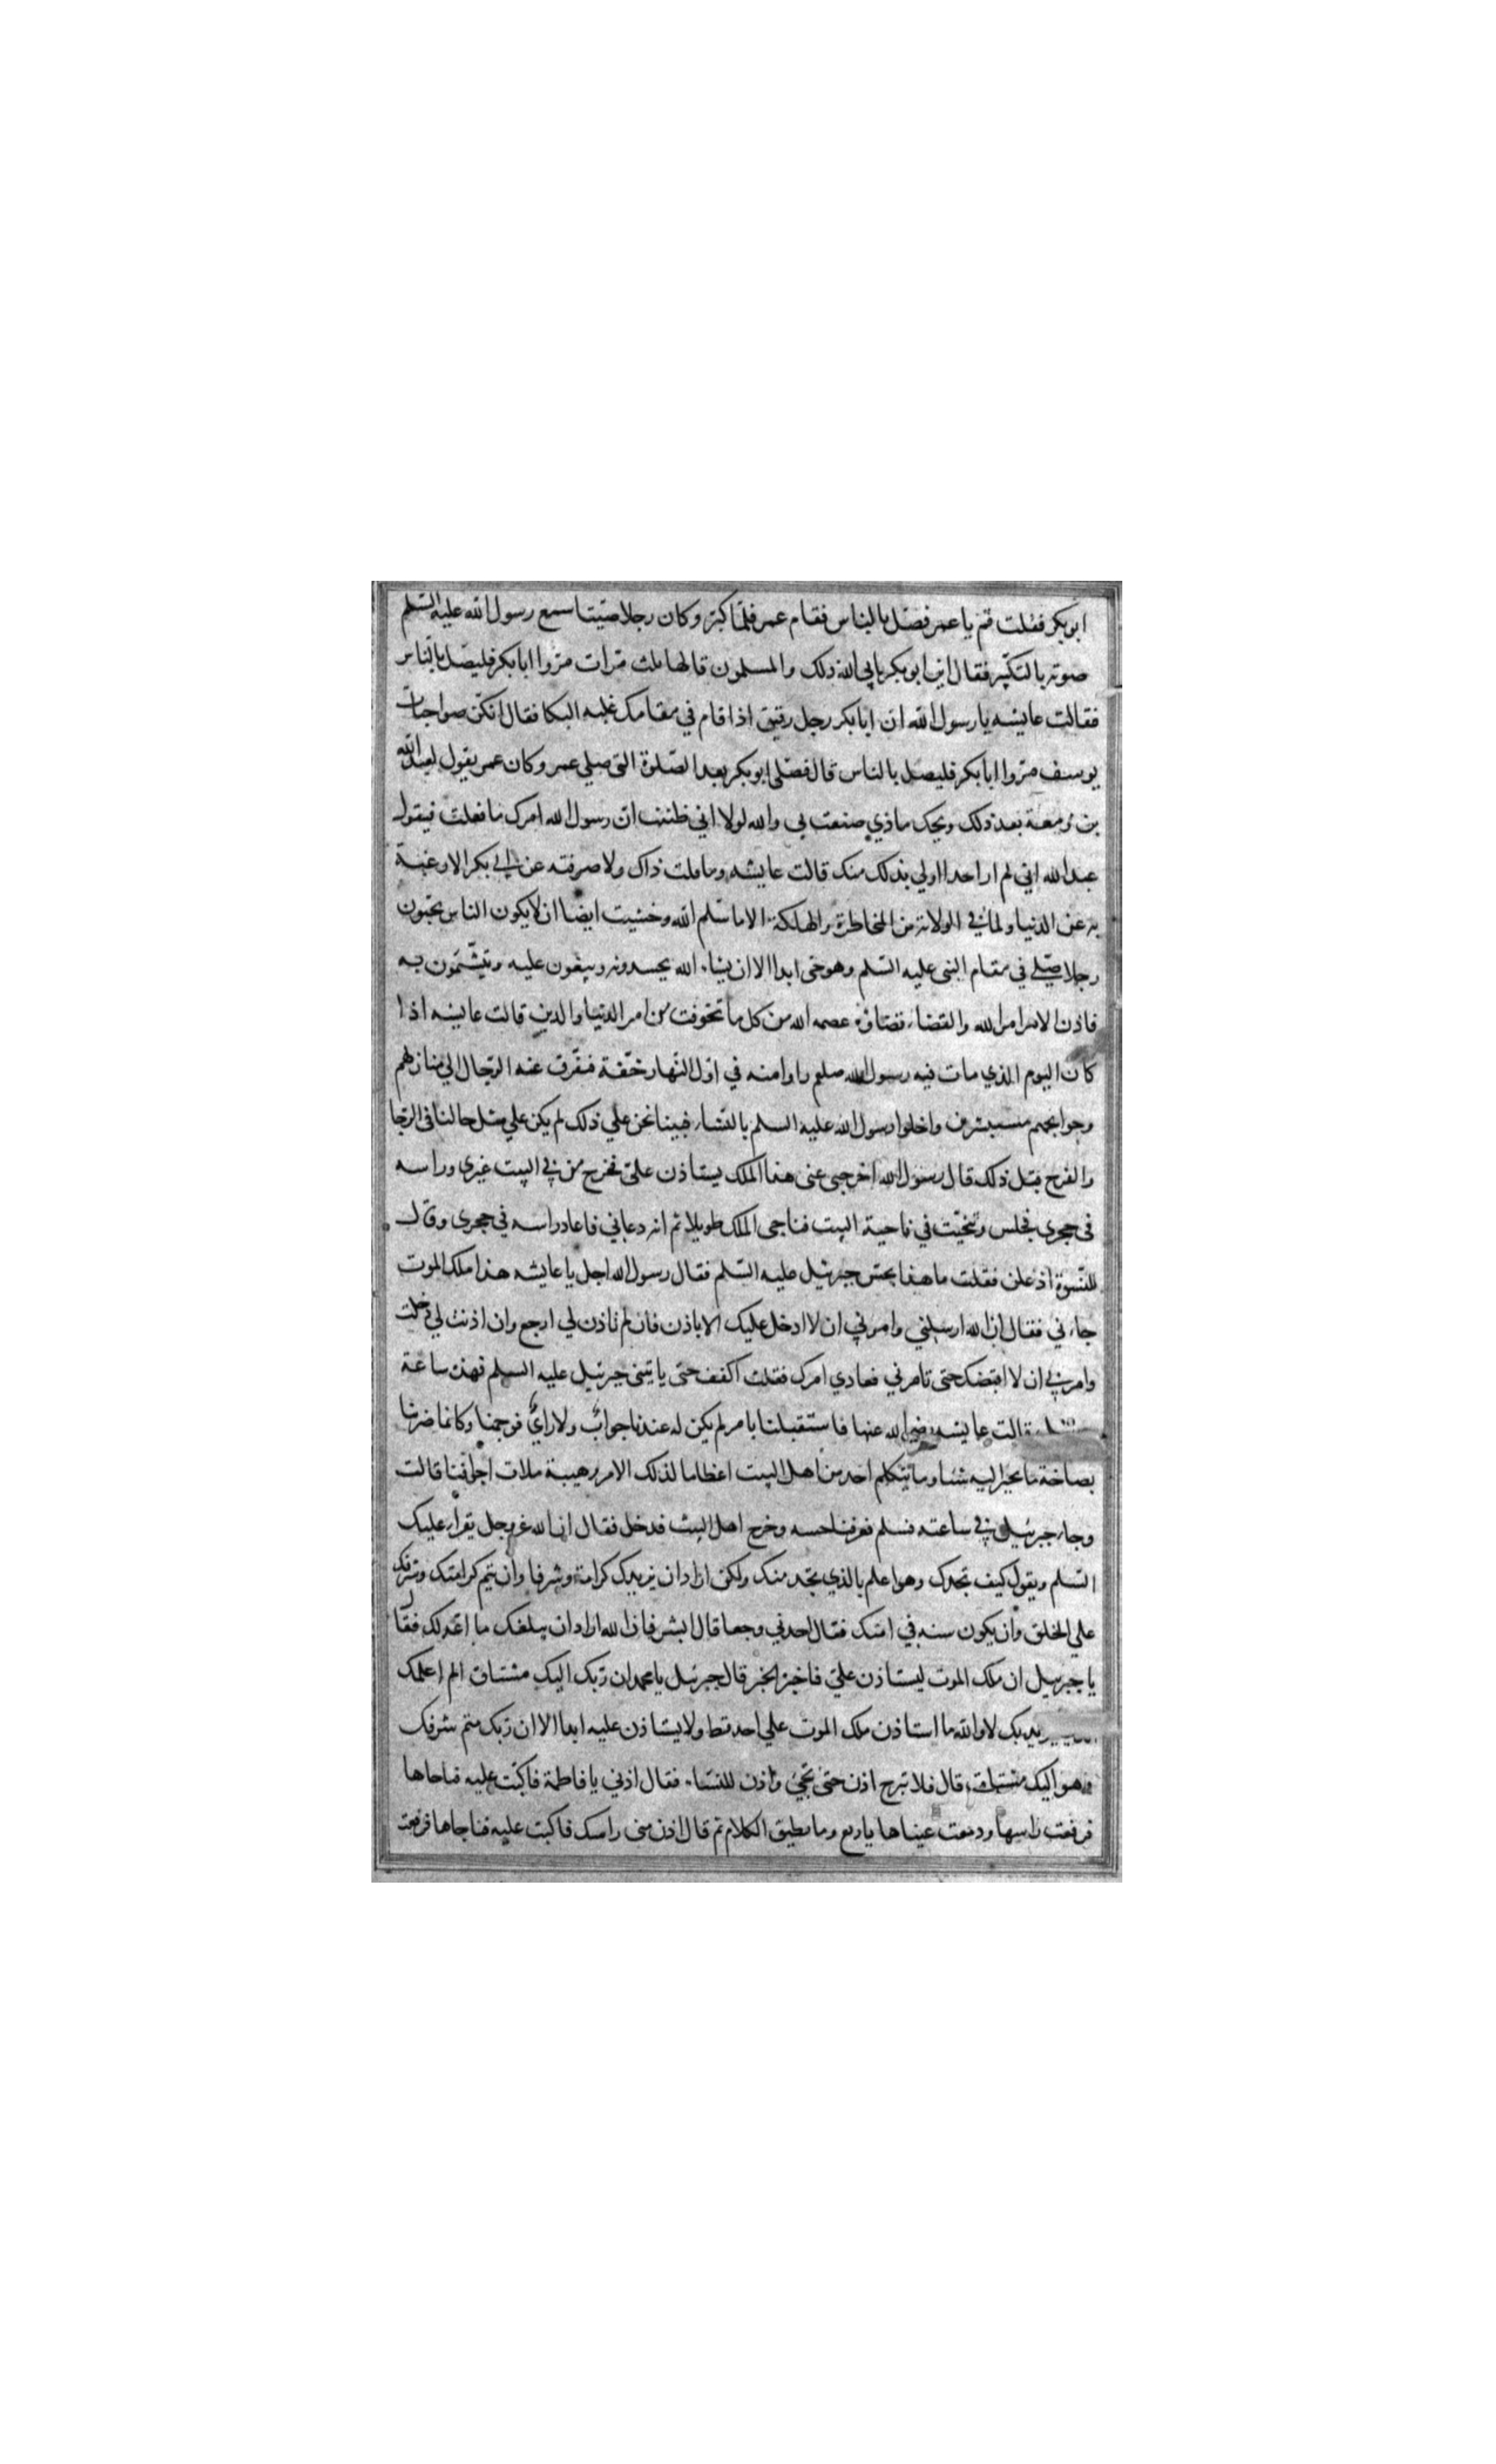 ابوبكر فقلت قم يا عمر فصل بالناس فقام عمر فلما كبر وكان رجلا صيتا سمع رسول الله عليه السلم
صوته بالتكبير فقال اين ابوبكر يابى الله ذلك والمسلمون قالها ثلث مرات مروا ابابكر فليصل بالناس
فقالت عايشه يا رسول الله ان ابابكر رجل رقيق اذا قام في مقامك غلبه البكا فقال انكن صواحبات
يوسف مروا ابابكر فليصل بالناس قال فصلى ابوبكر بعد الصلوة التي صلي عمر وكان عمر يقول لعبد الله
بن زمعة بعد ذلك ويحك ماذي صنعت بي والله لولا اني ظننت ان رسول الله امرك ما فعلت فيقول
عبد الله اني لم ار احدا اولي بذلك منك قالت عايشه وما قلت ذاك ولا صرفته عن ابي بكر الا رغبة
به عن الدنيا ولما في الولاية من المخاطرة والهلكة الا ما سلم الله وخشيت ايضا ان لا يكون الناس يحبون
رجلا صلي في مقام النبي عليه السلم وهو حى ابدا الا ان يشاء الله يحسدونه ويبغون عليه ويتشئمون به
فاذن الامر امر الله والقضاء قضاؤه عصمه الله من كل ما تخوفت من امر الدنيا والدين قالت عايشه اذا
كان اليوم الذي مات فيه رسول الله صلعم راوا منه في اول النهار خفة فتفرق عنه الرجال الي منازلهم
وحوايجهم مستبشرين واخلوا رسول الله عليه السلم بالنساء فبينا نحن علي ذلك لم يكن علي مثل حالنا في الرجا
والفرح قبل ذلك قال رسول الله اخرجى عنى هذا الملك يستاذن علي فخرج من في البيت غيري وراسه
في حجري فجلس وتنحيت في ناحية البيت فناجى الملك طويلا ثم انه دعاني فاعاد راسه في حجري وقال
للنسوة ادخلن فقلت ما هذا بحس جبرئيل عليه السلم فقال رسول الله اجل يا عايشه هذا ملك الموت
جاءني فقال ان الله ارسلني وامرني ان لا ادخل عليك الا باذن فان لم تاذن لي ارجع وان اذنت لي دخلت
وامرني ان لا اقبضك حتى تامرني فماذي امرك فقلت اكفف حتى ياتيني جبرئيل عليه السلم فهذه ساعة
قالت عايشه رضي الله عنها فاستقبلنا بامر لم يكن له عندنا جواب ولا راي فوجمنا وكانما ضربنا
بصاخة ما نحير اليه شئا وما يتكلم احد من اهل البيت اعظاما لذلك الامر وهيبة ملات اجوافنا قالت
وجاء جبرئيل في ساعته فسلم فعرفنا حسه وخرج اهل البيت فدخل فقال ان الله عز وجل يقراء عليك
السلم ويقول كيف تجدك وهو اعلم بالذي تجد منك ولكن اراد ان يزيدك كرامة وشرفا وان يتم كرامتك وشرفك
علي الخلق وان يكون سنه في امتك فقال اجدني وجعا قال ابشر فان الله اراد ان يبلغك ما اعد لك فقال
يا جبرئيل ان ملك الموت ليستاذن علي فاخبره الخبر قال جبرئيل يا محمد ان ربك اليك مشتاق الم اعلمك
يريد بك لا والله ما استاذن ملك الموت علي احد قط ولا يستاذن عليه ابدا الا ان ربك متم شرفك
وهو اليك مشتاق قال فلا تبرح اذن حتى يجئ واذن للنساء فقال ادني يا فاطمة فاكبت عليه فناجاها
فرفعت راسها ودمعت عيناها ... وما تطيق الكلام ثم قال ادن منى راسك فاكبت عليه فناجاها فرفعت